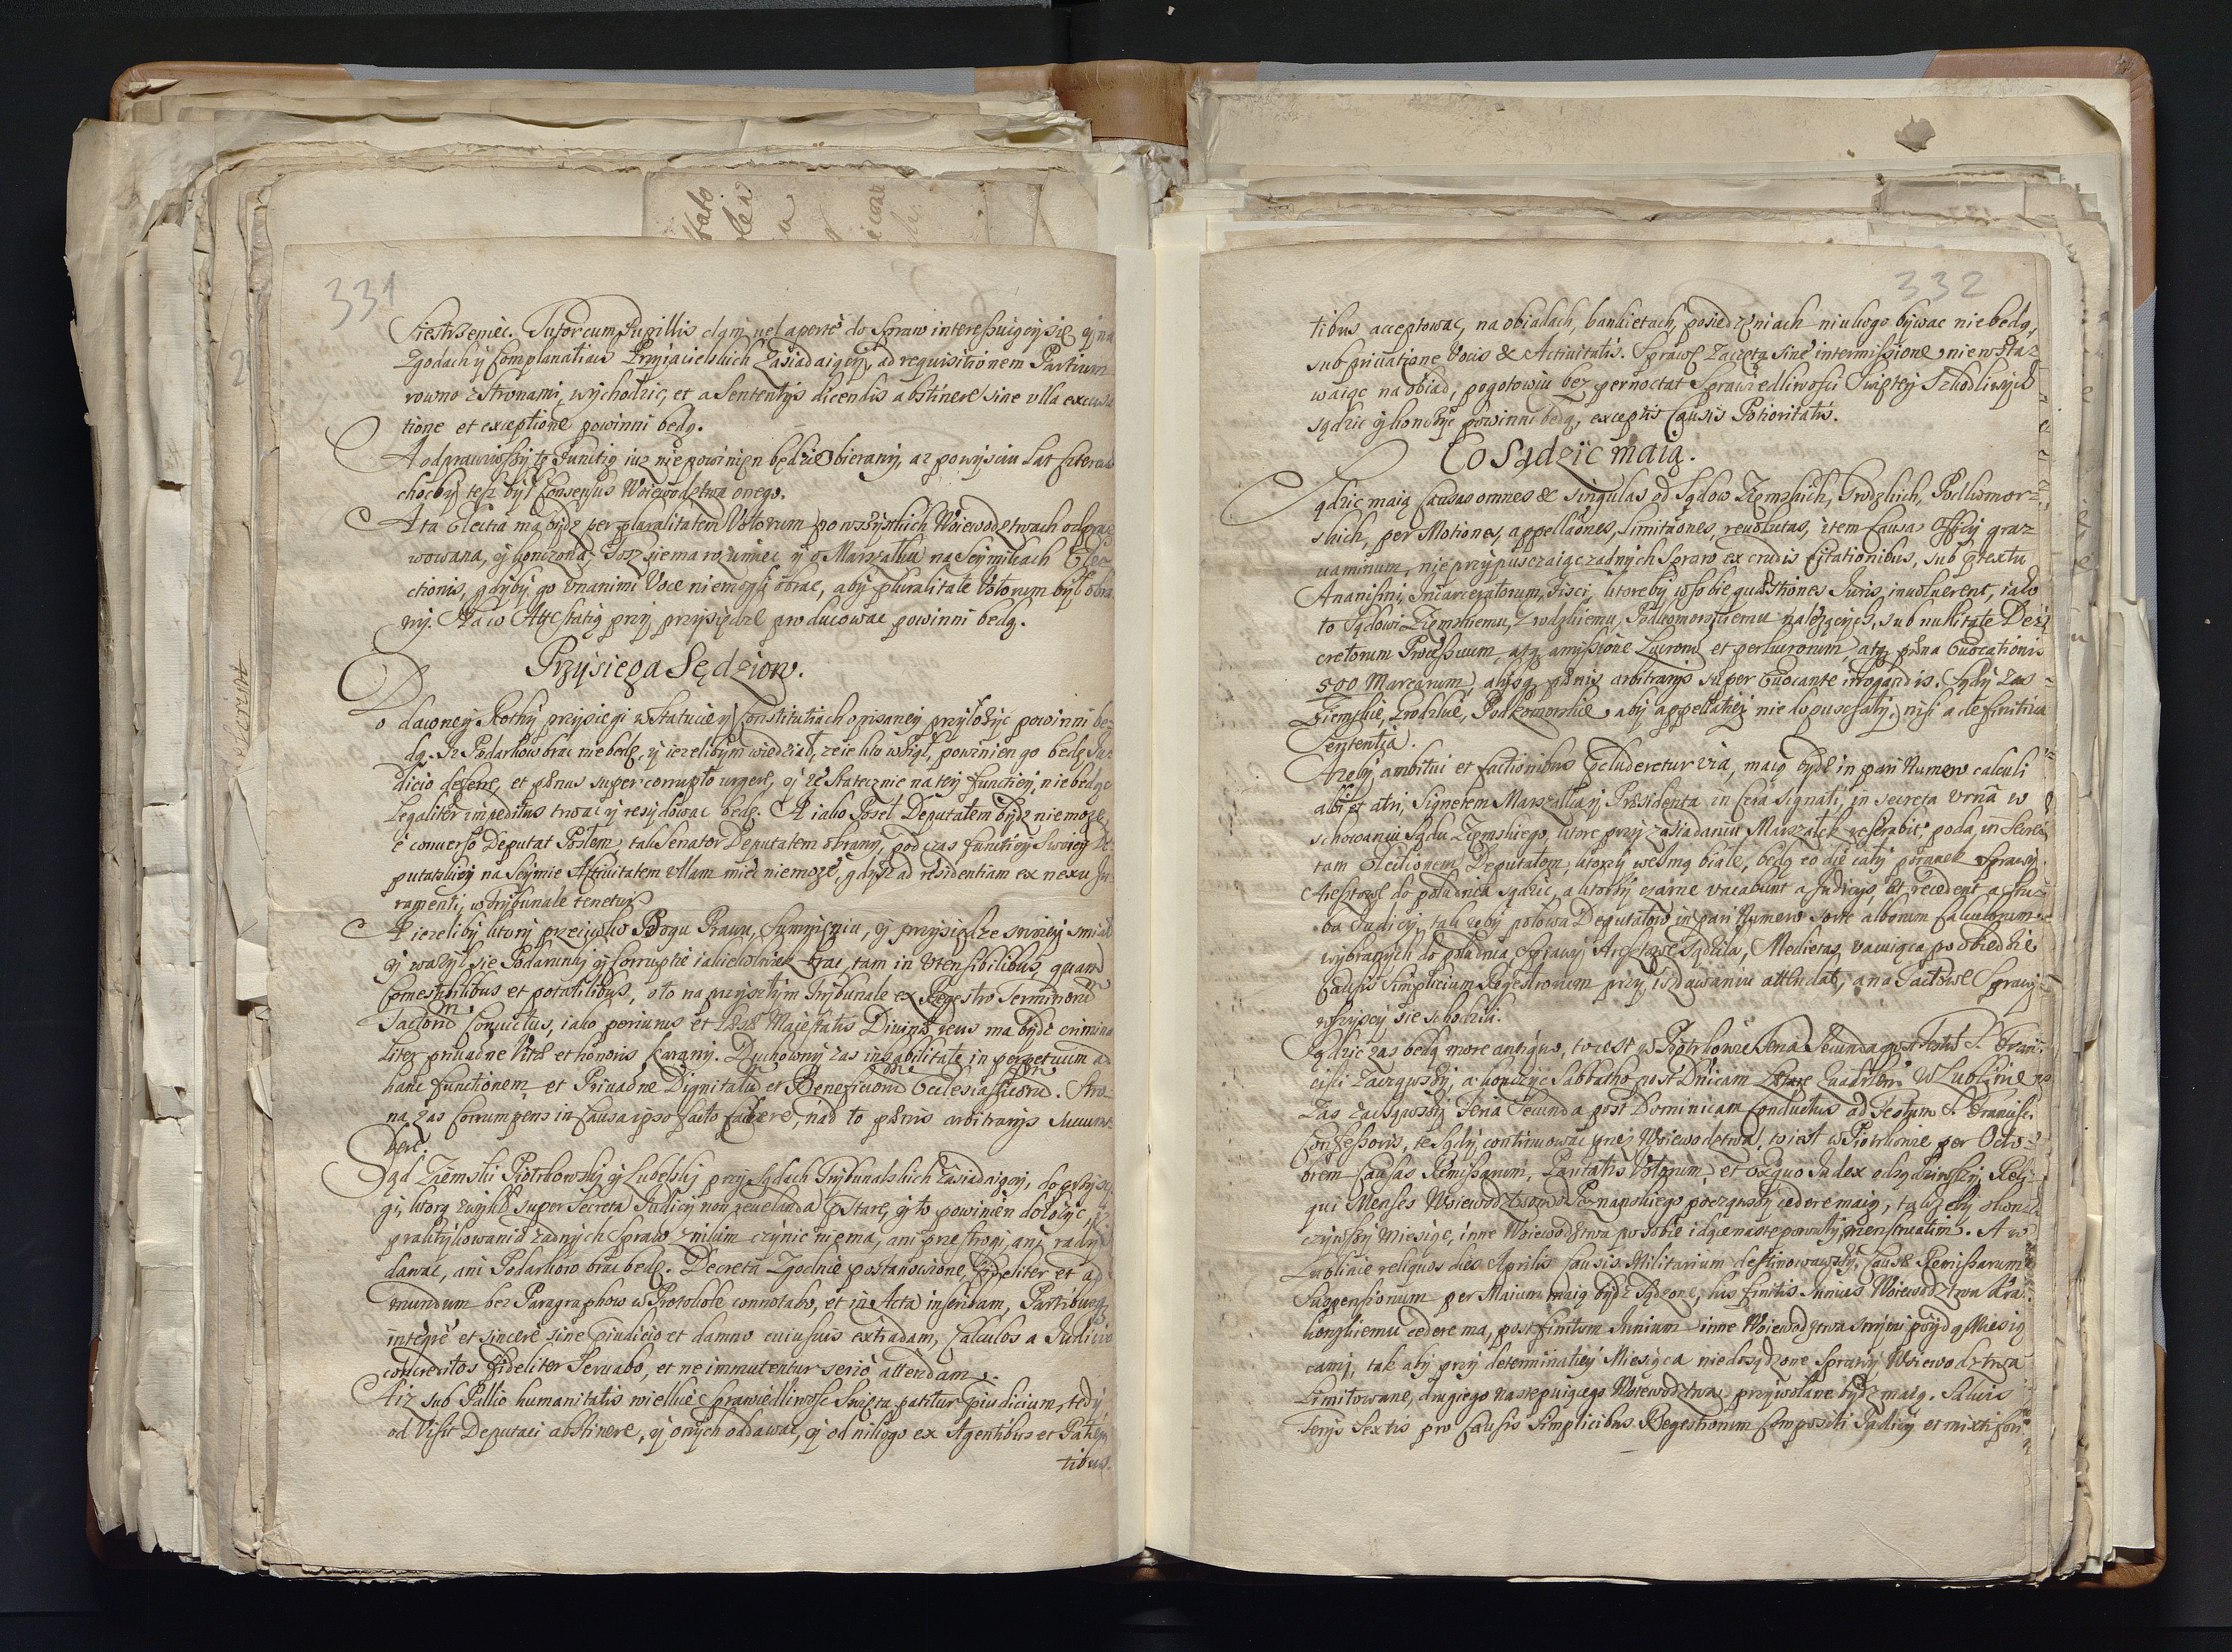 331
Siestrzeniec. Tutor cum Pupillis clam uel aperte do Spraw interessuiący się, y na
Zgodach y Complanatiach Przyiacielskich zasiadaiący, ad requisitionem Partium
rowno z Stronami, wychodzic, et a Sententijs dicendis abstinere sine vlla excusa
tione et exceptione powinni będą.
A odprawiwszy tę Functią iuz nie powinien będzie obierany, az powyściu Lat sterech
chocby tesz był Consensus Woiewodztwa onego.
A ta Electia ma bydz per pluralitatem Votorum po wszystkich Woiewodztwach odpra
wowana, y konczona, Tosz sie ma rozumiec y o Marszałku na Seymikach Ele
ctionis, gdyby go Vnanimi Voce niemogli obrac, aby pluralitate Votorum był obra
ny. Na co Attestatią przy przysiędze producowac powinni będą.
Przysiega Sędziow.
Do dawney Rothy przysiegi w Statucie y Constitutiach opisaney przyłozyc powinni be
dą. Iz Podarkow brac niebedę, y iezelibym wiedział, ze ie kto wziął, powinien go bedę Iu
dicio deferre, et pœnas super corrupto urgere, y ze Statecznie na tey functiey, niebedąc
Legaliter impeditus trwac y resydowac bedę. A iako Poseł Deputatem bydz niemoze,
è conuerso Deputat Posłem, tak Senator Deputatem obrany, pod czas functiey Swoiey De
putatskiey na Seymie Actiuitatem vllam miec niemoze, gdyz ad residentiam ex nexu Iu
ramenti, w Trybunale tenetur.
A iezeliby ktory przeciwko Bogu Prawu, Sumnieniu, y przysiędze swoiey smiał
y wazył sie Podarunki y Corruptie iakiekolwiek brac, tam in Vtensibilibus quam
Comestibilibus et potabilibus, o to na przyszłym Trybunale ex Regestro Terminorum
Tactorum Conuictus, iako periurus et Læsæ Majestatis Diuinæ reus ma bydz crimina
liter priuatione Vitæ et honoris karany. Duchowny zas inhabilitate in perpetuum ad
hanc functionem et Priuatione Dignitatum et Beneficiorum Ecclesiasticorum. Stro
na zas Corrumpens in Causa ipso facto cadere, nad to pœnis arbitrarijs succum
bere.
Sąd Ziemski Piotrkowsky y Lubelsky przy Sądach Trybunalskich zasiadaiący, do przysię
gi, ktorą zwykł super Secreta Iudicij non reuelanda præstare, y to powinien dołozyc, iz
praktykowania zadnych Spraw znikim czynic niema, ani przestrogi, ani rady
dawac, ani Podarkow brac bedę. Decreta Zgodnie postanowione, fideliter et ad
mundum bez Paragraphow w Protokole connotabo, et in Acta inseribam, Partibusq
integrè et sincerè sine præiudicio et damno cuiusuis extradam, Calculos a Iudicio
concreditos fideliter Seruabo, et ne immutentur seriò attendam.
A iz sub Pallio humanitatis wielkie Sprawiedliwosc Swięta patitur præiudicium, tedy
od Visit Deputaci abstinere, y onych oddawac, y od nikogo ex Agentibus et Patien
tibus.
332
tibus acceptowac, na obiadach, bankietach, posiedzeniach niukogo bywac nie będą,
sub priuatione Vocis & Actiuitatis. Sprawę zaczętą sine intermissione niewsta
waiąc na obiad, pogotowiu bez pernoctat Sprawiedliwosci Swiętey Szkodliwych
sądzic y konczyc powinni będą, exceptis Causis Potioritatis.
Co Sądzic maią.
Sądzic maią Causas omnes & singulas od Sądow Ziemskich, Grodzkich, Podkomor
skich, per Motiones, appellationes, limitationes, reuolutas, item Causas Officij graz
uaminum, nie przypusczaiąc zadnych Spraw ex crudis Citationibus, sub prætextu
Ananisini, Incarceratorum, Fisci, ktoreby w sobie quæstiones Iuris inuoluerent, iako
to Sądowi Ziemskiemu, Grodzkiemu, Podkomorskiemu nalezących, sub nullitate De
cretorum Processuum, atq amissione Lucrorum et perlucrorum, atq pœna Euocationis
500 Marcarum, alijsq pœnis arbitrarijs super Euocante irrogandis. Sądy zas
Ziemskie, Grodzkie, Podkomorskie aby appellatiey nie dopusczały, nisi a definitiua
Sententia.
A zeby ambitui et factionibus præcluderetur via, maią bydz in pari Numero calculi
albi et atri, Signetem Marszałka y Præsidenta in Cera signati, in secreta vrna w
schowaniu Sądu Ziemskiego, ktore przy zasiadaniu Marszałek reserabit, poda in Secre
tam Electionem Deputatom, ktorzy wezmą białe, będą eo die cały poranek Sprawy
Aresztowe do południa sądzic, a ktorzy czarne vacabunt a Iudicijs, et recedent a Stu
ba Iudicij, tak zeby połowa Deputatow in pari Numero sorte alborum Calculorum
wybranych do południa, Sprawy Aresztowe sądziła, Medietas vacuiąca poobiedzie
Causis Simplicium Regestrorum przy sądzawaniu attendat, a na Tactowe Sprawy
wszyscy sie schodzili.
Sądzic zas będą more antiquo, to iest w Piotrkowie Feria Secunda post Festum S. Fran
cisci zacząwszy, a konczyc Sabbatho post Dnicam Lætare Quadrlem W Lublinie
zas zacząwszy Feria Secunda post Dominicam Conductus ad Festum S. Francisci
Confessoris, te Sądy continuowac przez Woiewodztwa, to iest w Piotrkowie per Octo
brem Causas Remissarum, Paritatis Votorum, et Ex quo Iudex odsądziwszy, Reli
qui Menses Woiewodztwu Poznanskiego począwszy cedere maią, tak zeby skon
czywszy Miesiąc, inne Woiewodztwa po sobie idąc następowały, menstruatim. A w
Lublinie reliquos dies Aprilis Causis Militarium destinowawszy, Causæ Remissarum
Suspensionum per Maium maią bydz sądzone, his finitis Iunius Woiewodztwu Kra
kowskiemu cedere ma, post finitum Iunium inne Woiewodztwa swymi poydą Miesią
cami, tak aby przy determinatiey Miesiąca niedosądzone Sprawy Woiewodztwa
Limitowane, drugiego następuiącego Woiewodztwa przywołane bydz maią. Saluis
Ferijs Sextis pro Causis Simplicibus Regestrorum Compositi Iudicij et mixti fori